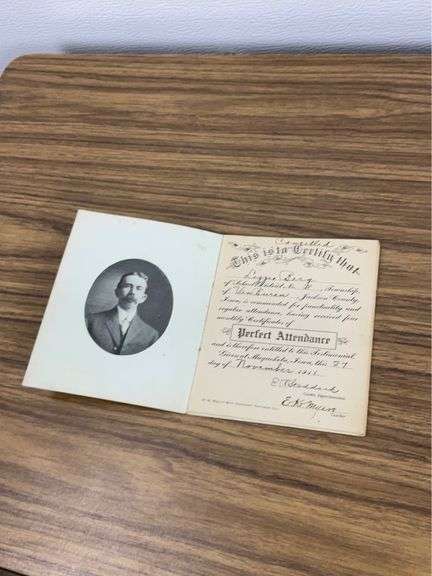 Cancelled
This is to Certify that
of School District No. 8 Township
of Van Buren Jackson County,
Iowa, is commended for punctuality and
regular attendance, having received five
monthly Certificates of
Perfect Attendance
and is therefore entitled to this Testimonial
Given at Maquoketa, Iowa, this 27
day of November 1911.
County Superintendent
E. K. Myers
Teacher